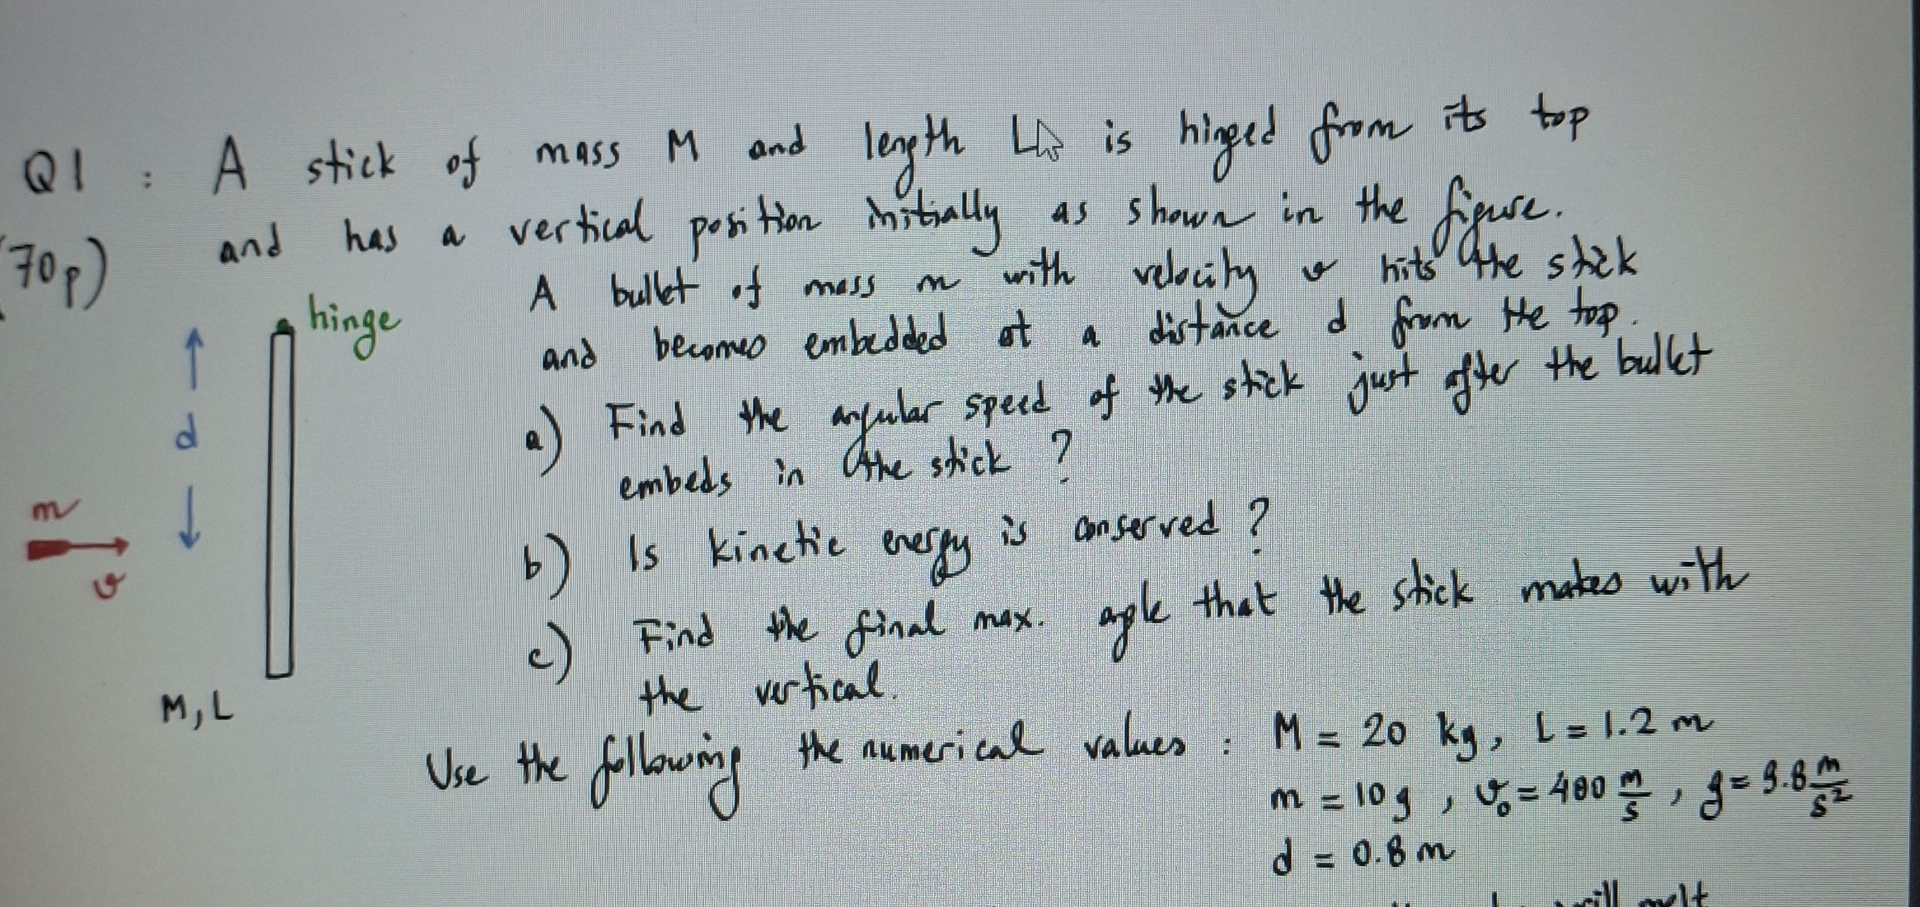 Q1 : A stick of mass M and length L is hinged from its top
(70p) and has a vertical position initially as shown in the figure.
A bullet of mass m with velocity v hits the stick
and becomes embedded at a distance d from the top.
a) Find the angular speed of the stick just after the bullet
embeds in the stick ?
b) Is kinetic energy is conserved ?
c) Find the final max. agle that the stick makes with
the vertical.
Use the following the numerical values : M = 20 kg, L = 1.2 m
m = 10 g , v₀ = 400 m/s , g = 9.8 m/s²
d = 0.8 m
hinge
d
m
v
M, L
will melt